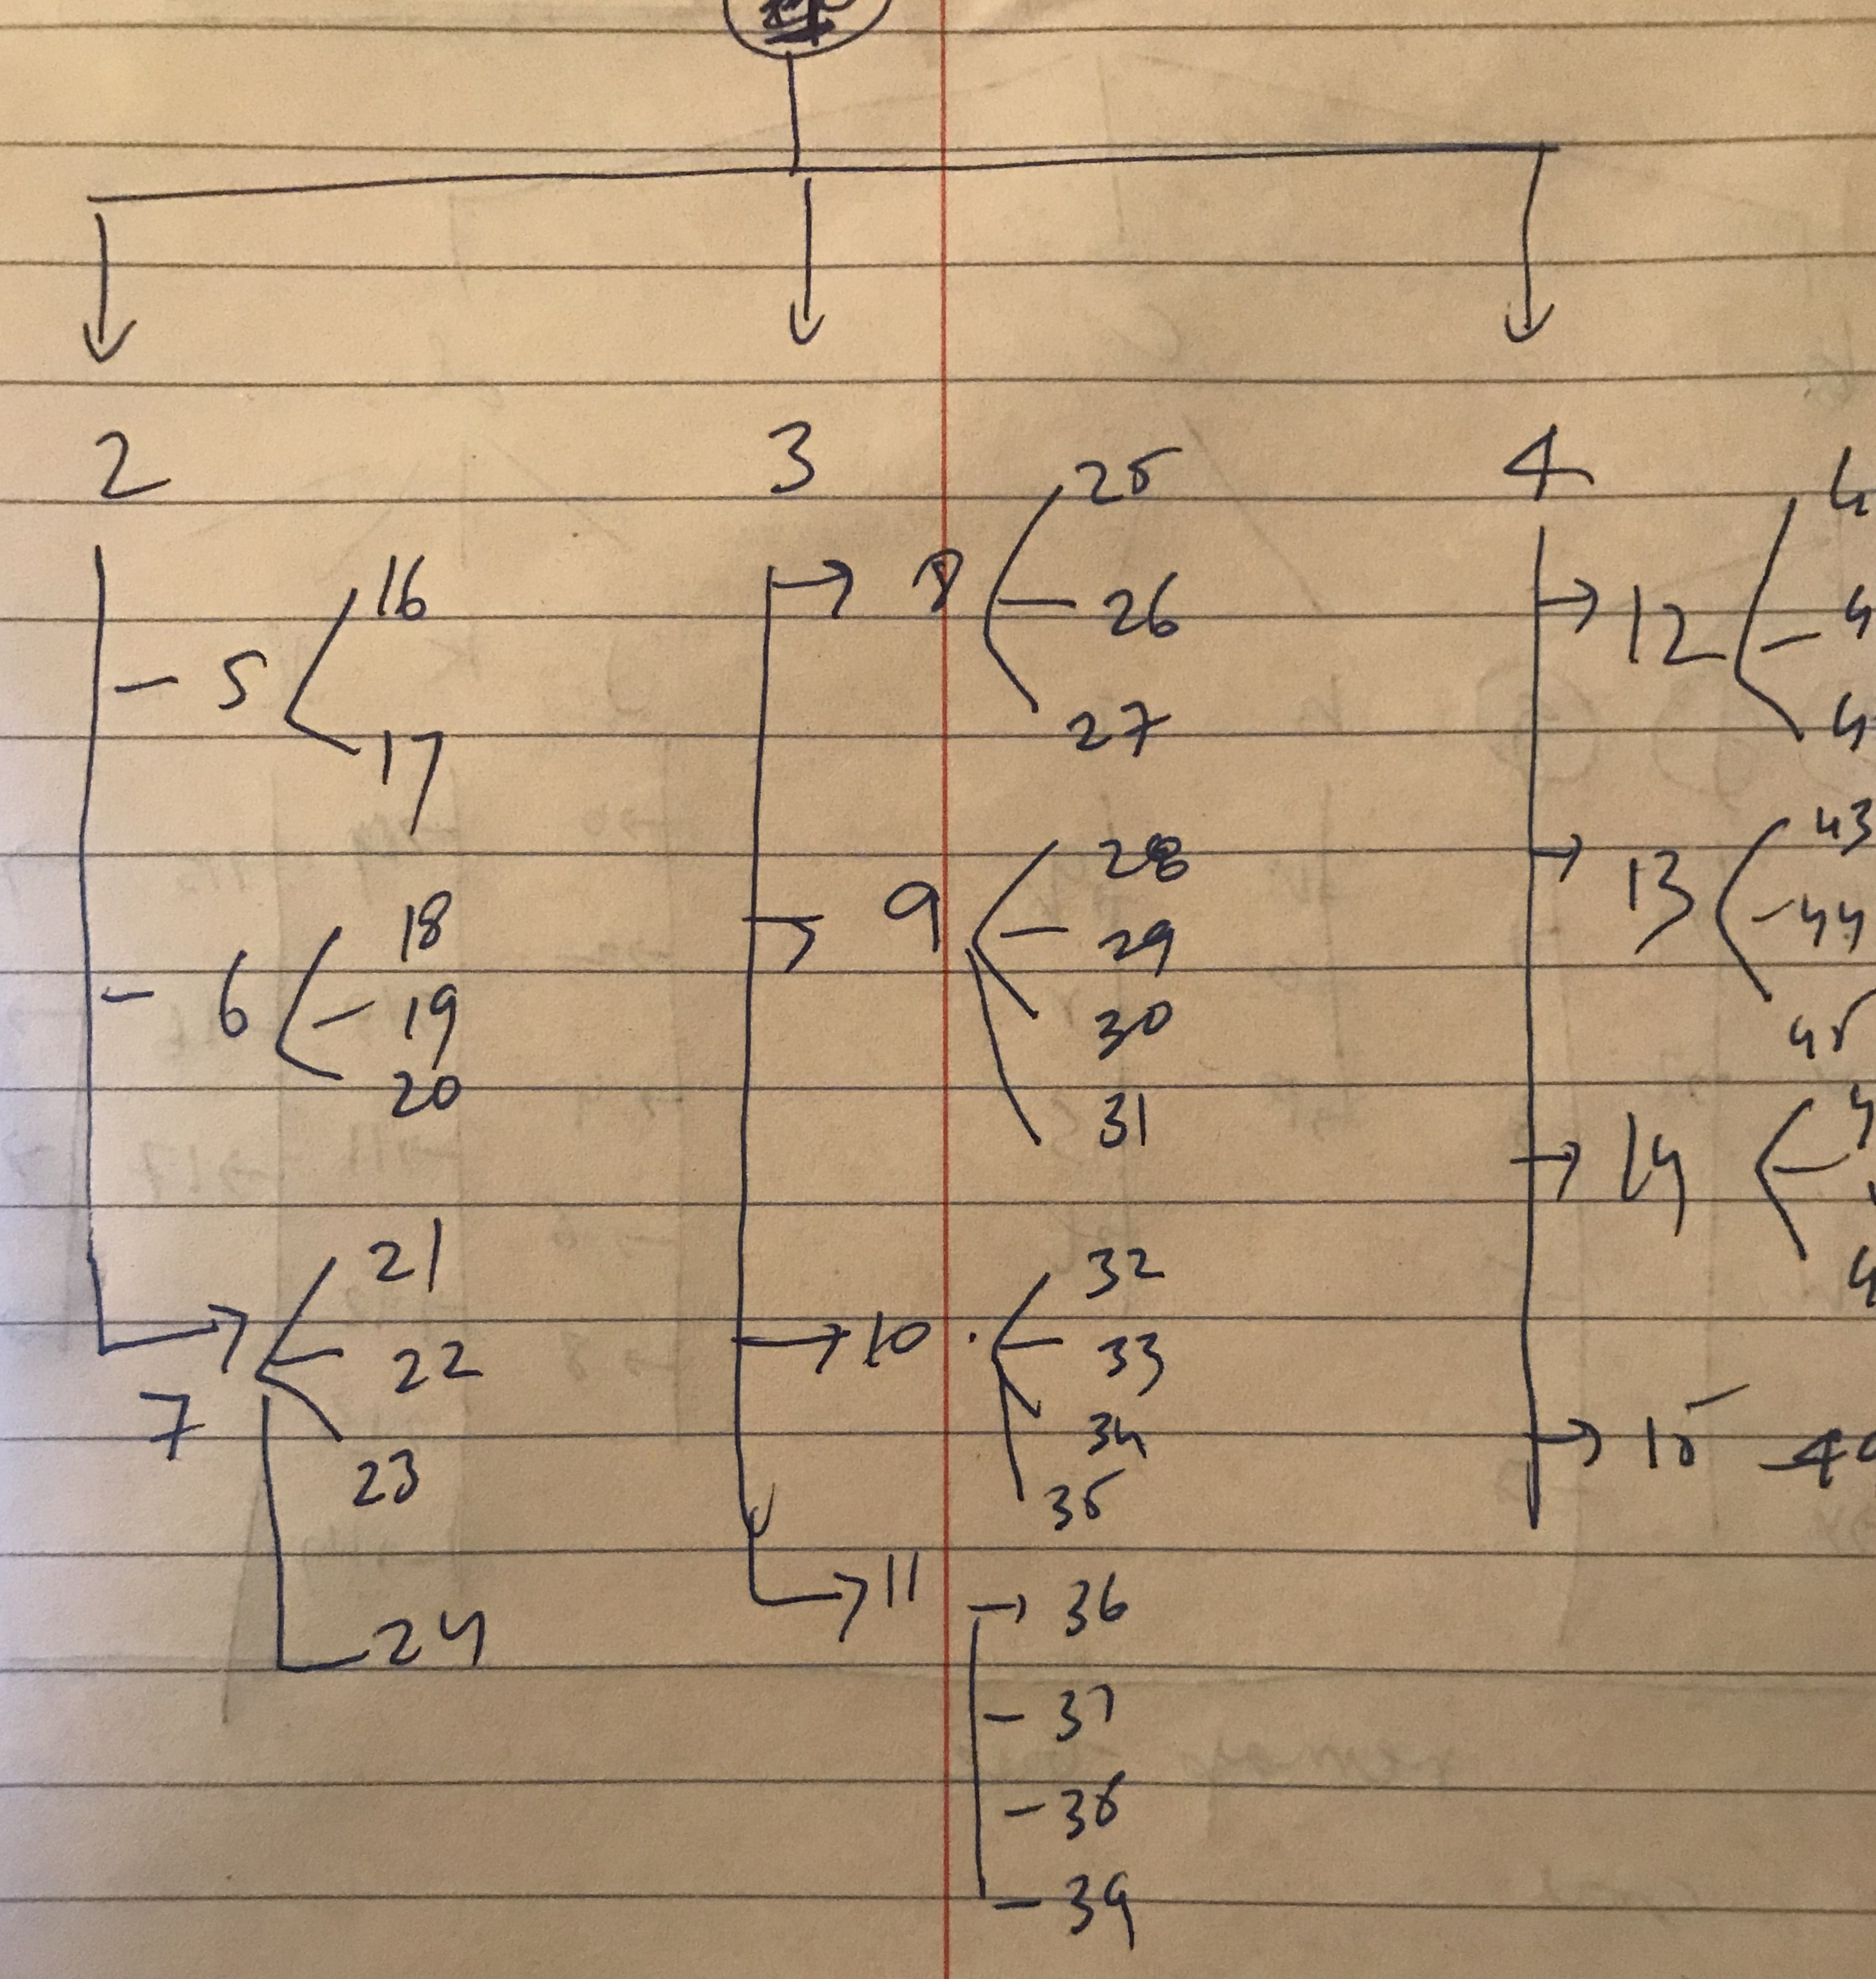 2 3 4
5 16
17
6 18
19
20
7 21
22
23
24
8 25
26
27
9 28
29
30
31
10 32
33
34
35
11 36
37
38
39
12
13 43
44
45
14
15